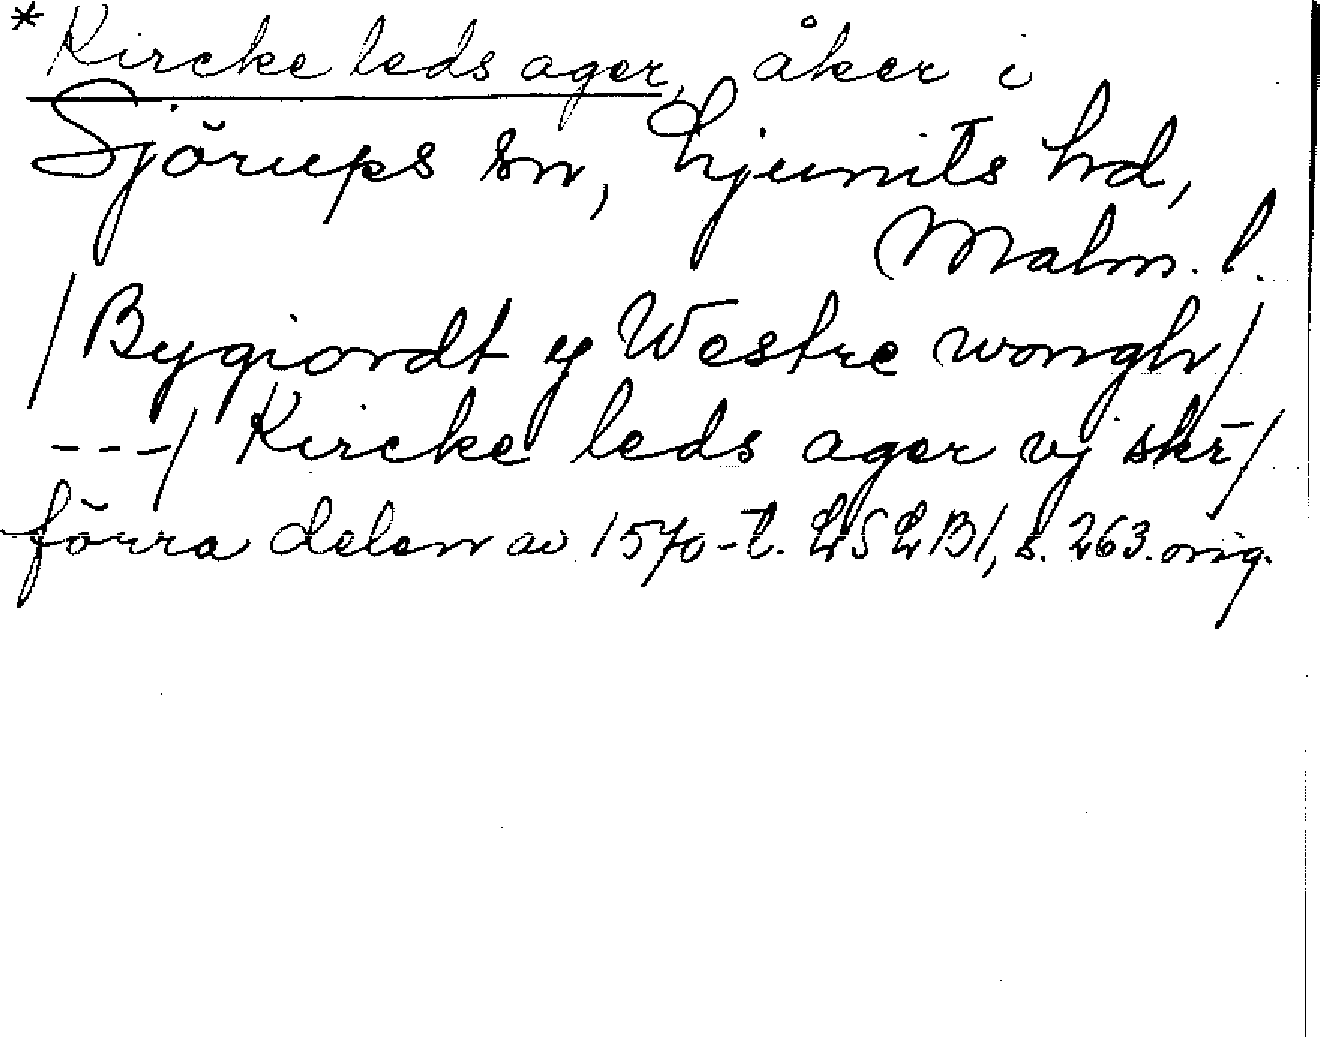 *Kircke leds ager, åker i
Sjörups sn, Ljunits hd,
Malm. l.
/Bygiordt y Westre wongh/
---/ Kircke leds ager vj skr/
förra delen av 1570-t. LSLB1, s. 263. orig.